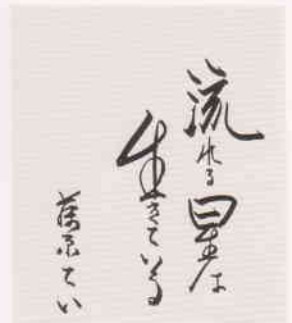 流れる星は
生きている
藤原てい